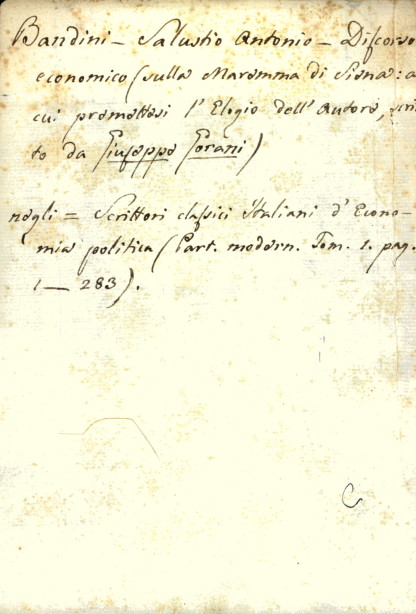 Bandini — Salustio Antonio — Discorso
economico (sulla Maremma di Siena: a
cui premettesi l'Elogio dell'Autore, scrit
to da Giuseppe Gorani)
negli = Scrittori classici Italiani d'Econo-
mia politica (Part. modern. Tom. 1. pag.
1 — 283).
C